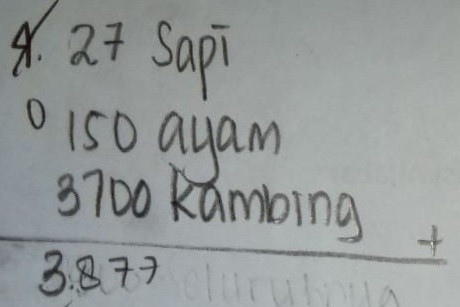 4. 27 Sapi
0 150 ayam
3700 kambing +
3.877